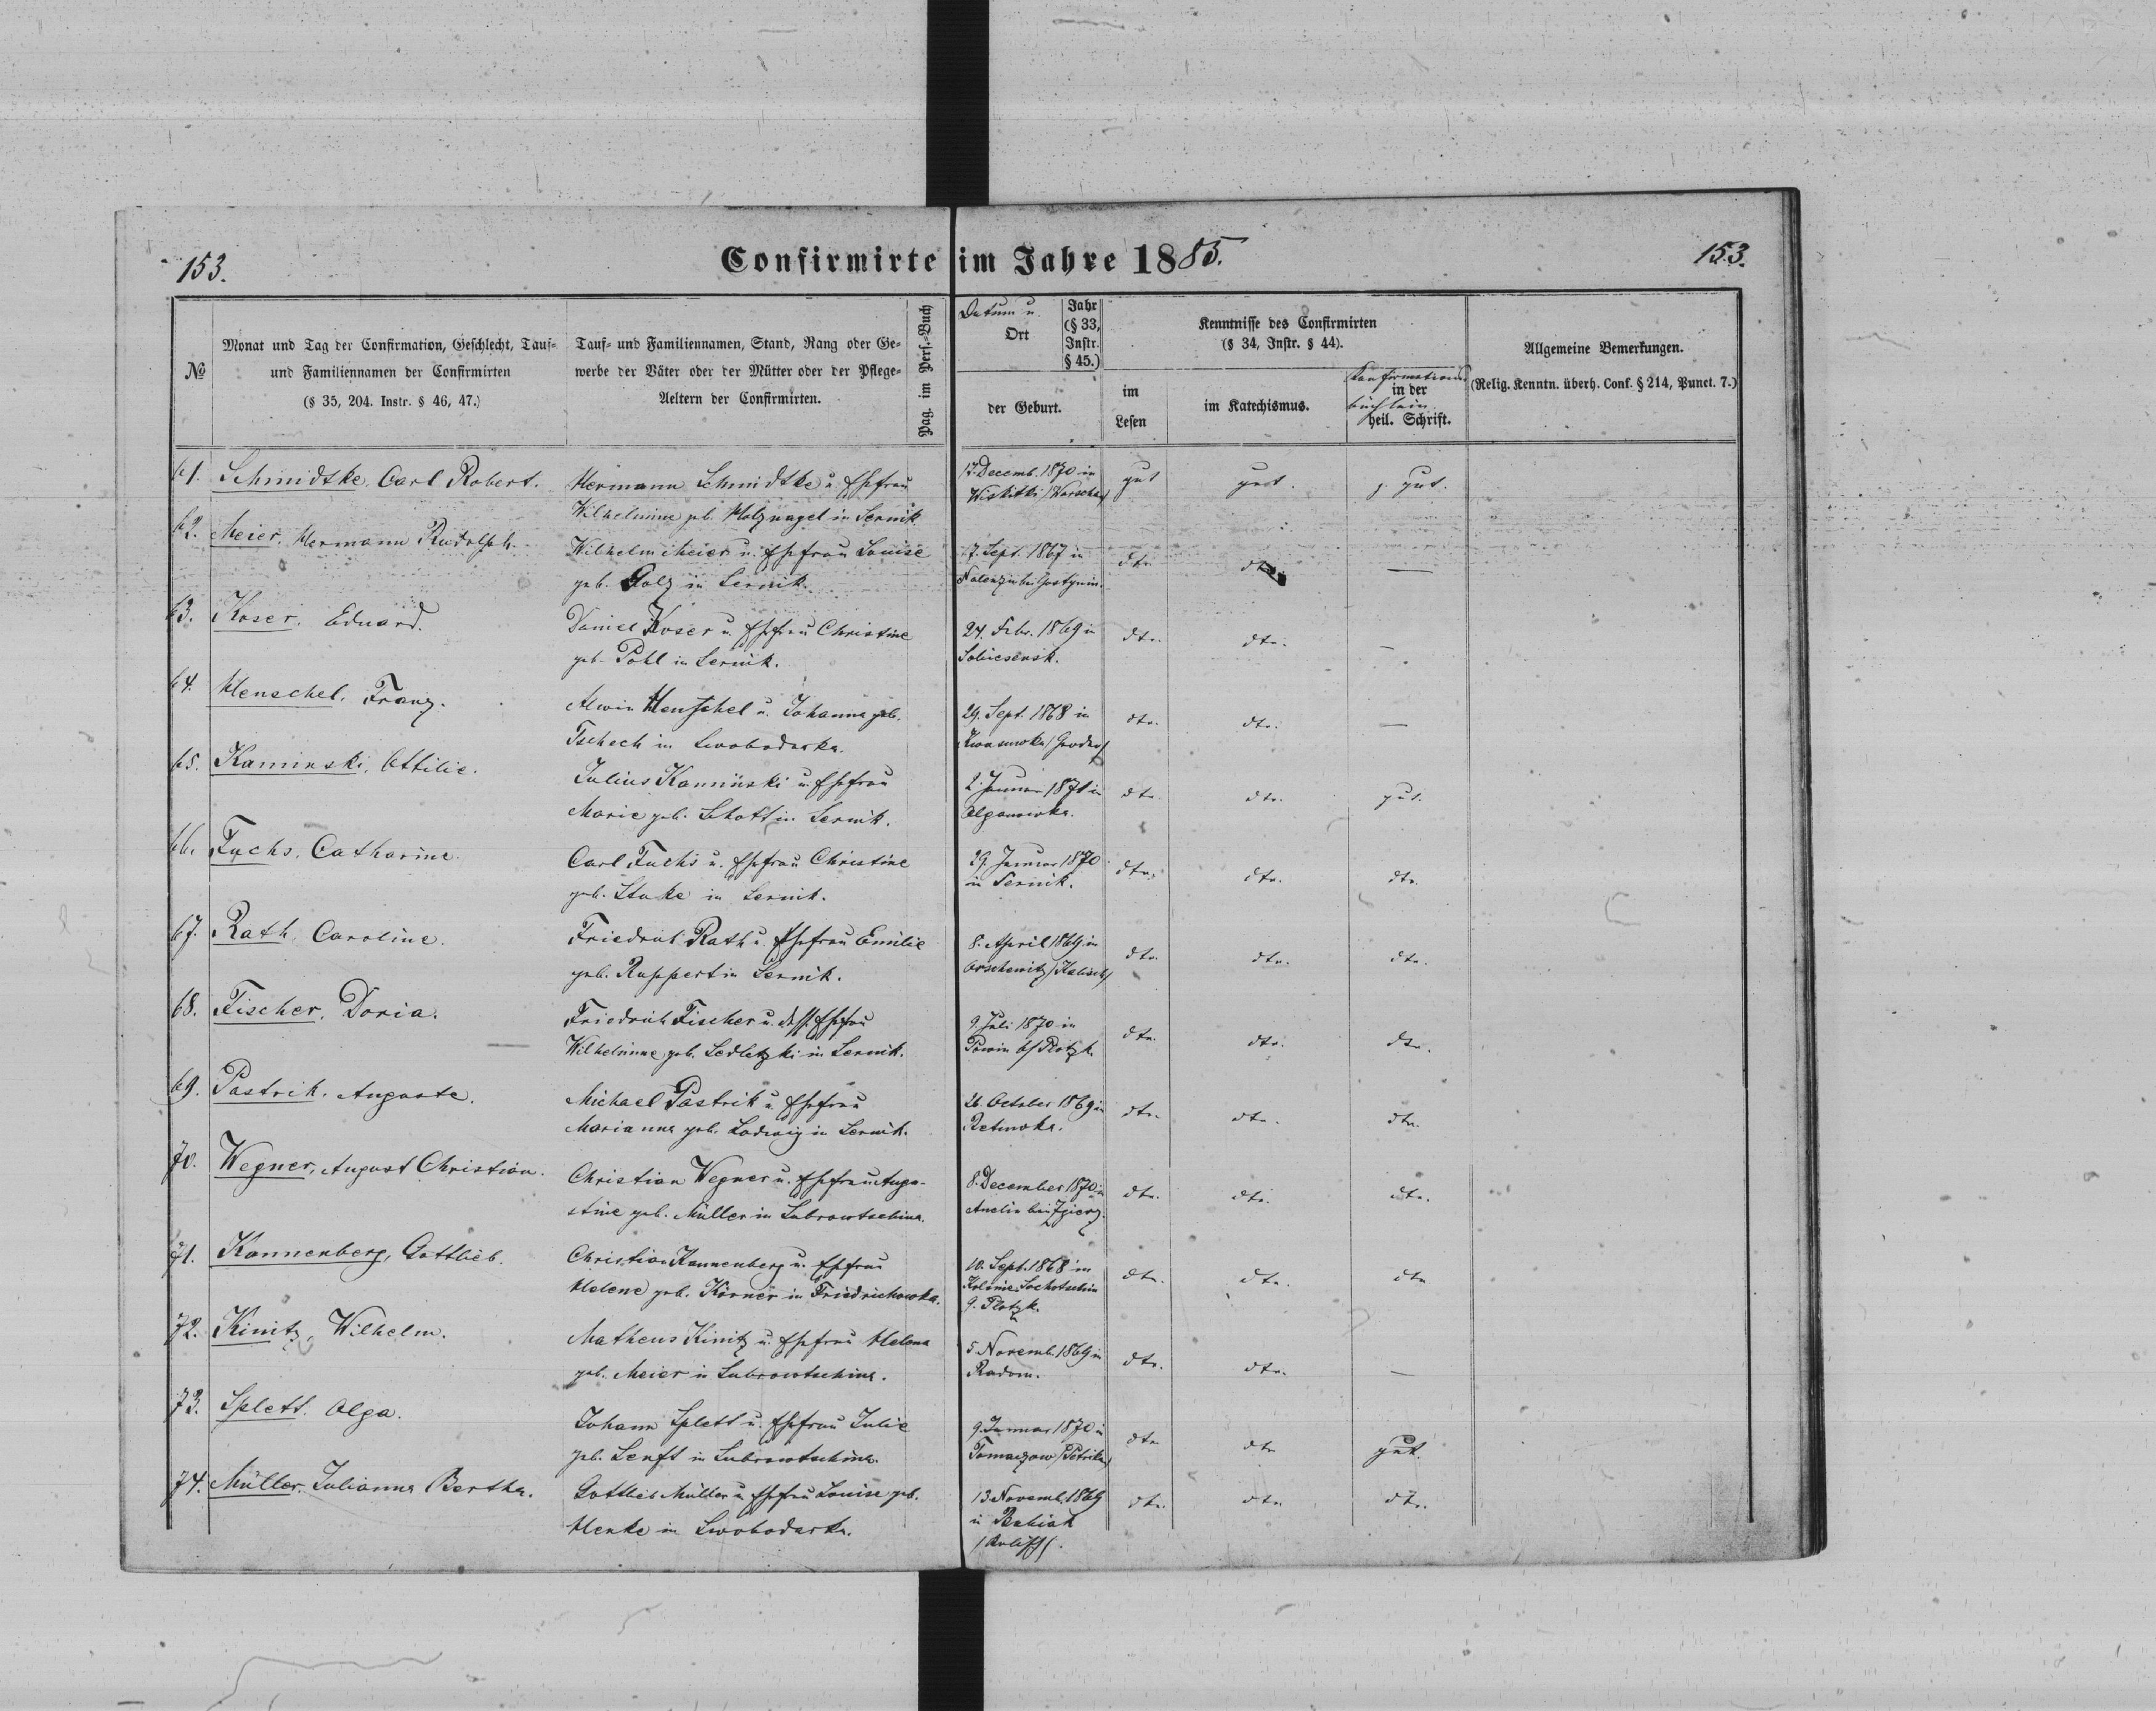 153.
Confirmirte im Jahre 1885.
153.
№
Monat und Tag der Confirmation, Geschlecht, Tauf-
und Familiennamen der Confirmirten
(§ 35, 204. Instr. § 46, 47.)
Tauf- und Familiennamen, Stand, Rang oder Ge-
werbe der Väter oder der Mütter oder der Pflege-
Aeltern der Confirmirten.
Pag. im Pers.-Buch
Datum u.
Ort
Jahr
(§ 33,
Instr.
§ 45.)
der Geburt.
Kenntnisse des Confirmirten
(§ 34, Instr. § 44).
im
Lesen
im Katechismus.
Konfirmations
in der
büchlein
heil. Schrift.
Allgemeine Bemerkungen.
(Relig. Kenntn. überh. Conf. § 214, Punct. 7.)
61. Schmidtke, Carl Robert.
Hermann Schmidtke u. Ehefrau
Wilhelmine geb. Holznagel in Sernik
17. Decemb. 1870 in
Wiskitki /Warschau/
gut
gut.
z. gut.
62. Meier, Hermann Rudolph.
Wilhelm Meier u. Ehefrau Louise
geb. Golz in Sernik.
7. Sept. 1867 in
bei Gostynin.
dto.
dto.
—
63. Koser, Eduard.
Daniel Koser u. Ehefrau Christine
geb. Pohl in Sernik.
24. Febr. 1869 in
Sobiesensk.
dto.
dto.
—
64. Henschel, Franz.
Alwin Henschel u. Johanna geb.
Tschech in Swobodarka.
29. Sept. 1868 in
dto.
dto.
—
65. Kaminski, Ottilie.
Julius Kaminski u. Ehefrau
Marie geb. Schott in Sernik.
2. Januar 1871 in
Olganowka.
dto.
dto.
gut.
66. Fuchs, Catharine.
Carl Fuchs u. Ehefrau Christine
geb. Stake in Sernik.
29. Januar 1870
in Sernik.
dto.
dto.
dto.
67. Rath, Caroline.
Friedrich Rath u. Ehefrau Emilie
geb. Ruppert in Sernik.
8. April 1869 in
Orschewitz /Kalisch/
dto.
dto.
dto.
68. Fischer, Doria.
Friedrich Fischer u. dess. Ehefrau
Wilhelmine geb. Sedletzki in Sernik.
9. Juli 1870 in
Powin b/ Plotzk.
dto.
dto.
dto.
69. Pastrik, Auguste.
Michael Pastrik u. Ehefrau
Marianna geb. Ladwig in Sernik.
26. October 1869 in
Retmoka.
dto.
dto.
dto.
70. Wegner, August Christian.
Christian Wegner u. Ehefrau Augu-
stine geb. Müller in Lubrowtschina.
8. December 1870 in
Anelin bei Zgierz.
dto.
dto.
dto.
71. Kannenberg, Gottlieb.
Christian Kannenberg u. Ehefrau
Helene geb. Körner in Friedrichowka.
10. Sept. 1868 in
Kolonie Sochotschin
G. Plotzk.
dto.
dto.
dto
72. Kinitz, Wilhelm.
Matheus Kinitz u. Ehefrau Helena
geb. Meier in Lubrowtschina.
5. Novemb. 1869 in
Radom.
dto.
dto.
—
73. Splett, Olga.
Johann Splett u. Ehefrau Julie
geb. Senft in Lubrowtschina.
9. Januar 1870 in
Tomaszow /Petrikau/
dto
dto
gut.
74. Müller, Julianna Bertha.
Gottlieb Müller u. Ehefrau Louise geb.
Henke in Swobodarka.
13 Novemb. 1869
in Babiak
/Kalisch/.
dto.
dto
dto.